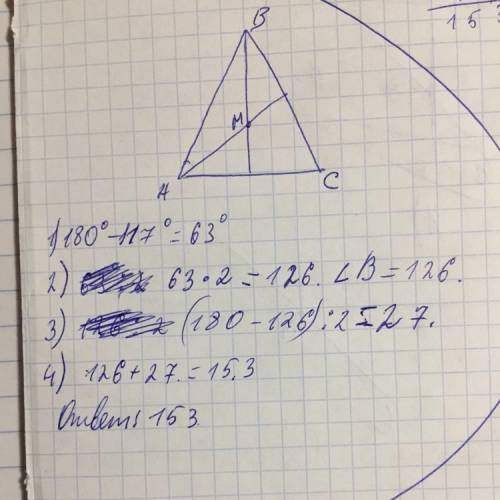 153
B
M
A
C
1) 180° - 117° = 63°
2) 63 · 2 = 126. ∠B = 126.
3) (180 - 126) : 2 = 27.
4) 126 + 27. = 15.3
Ответ: 153.